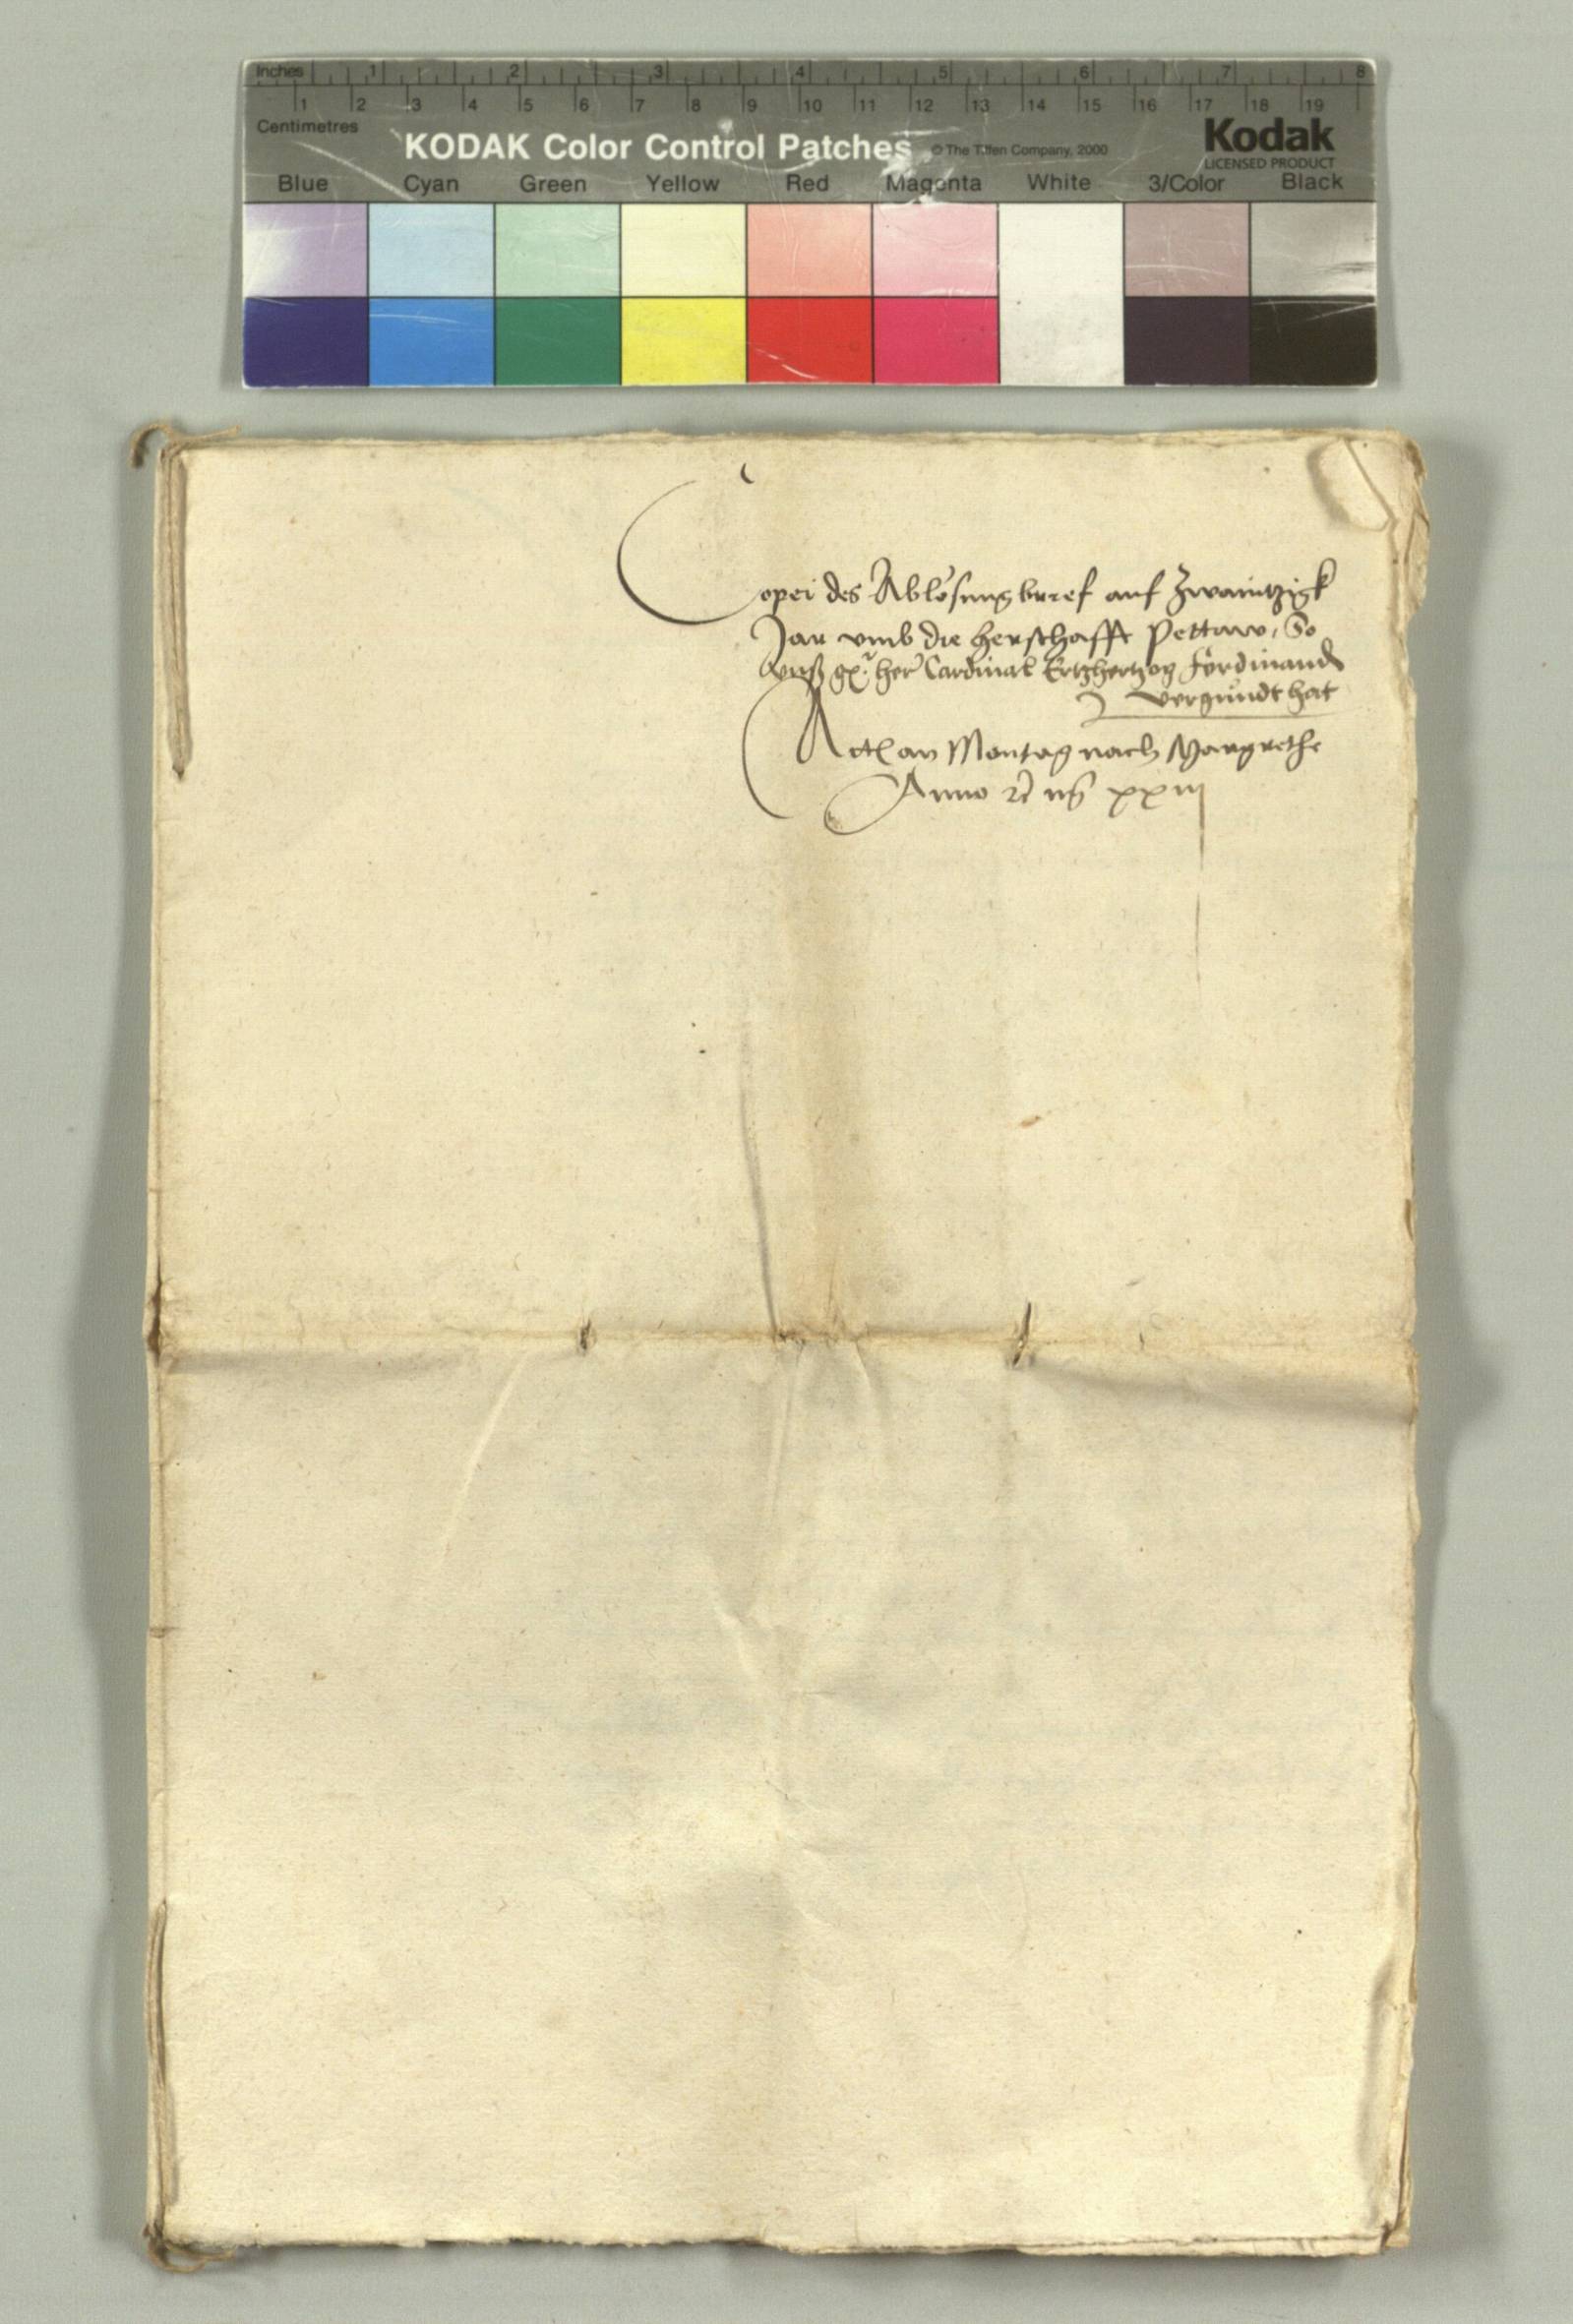 Inches 1 2 3 4 5 6 7 8
1 2 3 4 5 6 7 8 9 10 11 12 13 14 15 16 17 18 19
Centimetres
KODAK Color Control Patches © The Tiffen Company, 2000 Kodak
LICENSED PRODUCT
Blue Cyan Green Yellow Red Magenta White 3/Color Black
Copei des Ablösungbrief auf Zwaintzigk
Jar vmb die herschafft Pettaw, So
her Cardinal Ertzhertzog Ferdinand
vergundt hat
Act an Montag nach Margrethe
Anno xxiij